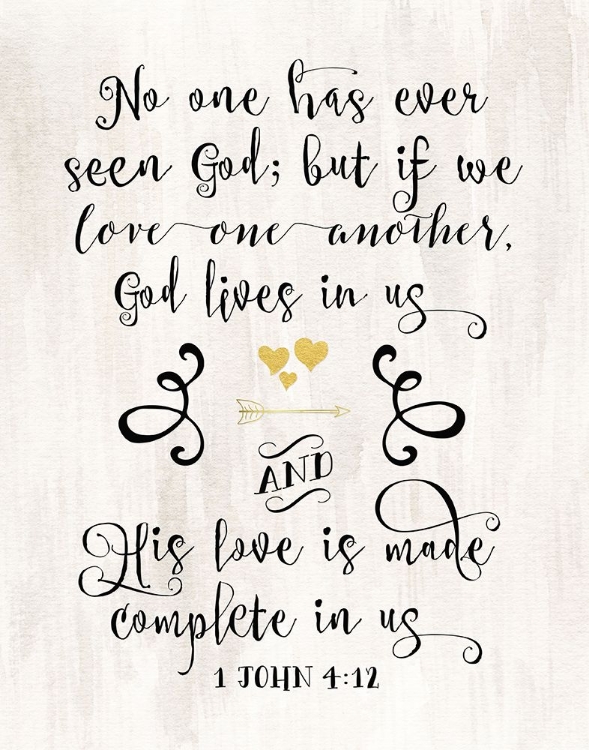 No one has ever
seen God; but if we
love one another,
God lives in us
AND
His love is made
complete in us
1 JOHN 4:12